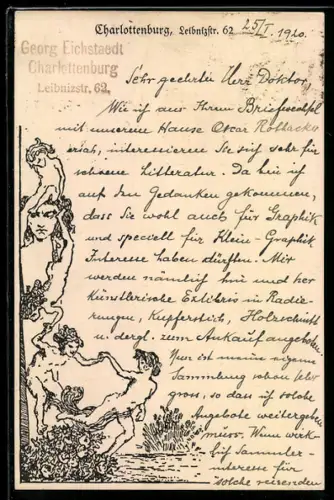 Charlottenburg, Leibnizstr. 62 25/I. 1910.
Georg Eichstaedt
Charlottenburg
Leibnizstr. 62.
Sehr geehrter Herr Doktor,
Wie ich aus Ihrem Briefwechsel
mit unserem Hause Oscar
erich, interessieren Sie sich sehr für
schöne Litteratur. Da bin ich
auf den Gedanken gekommen,
dass Sie wohl auch für Graphik
und speciell für Klein-Graphik
Interesse haben dürften. Mir
werden nämlich hin und her
künstlerische Exlibris in Radie-
rungen, Kupferstich, Holzschnitt
u. dergl. zum Ankauf angeboten.
Nun ist meine eigene
Sammlung schon sehr
gross, so dass ich solche
Angebote weitergeben
muss. Wenn
Sammler-
interesse für
solche reizenden